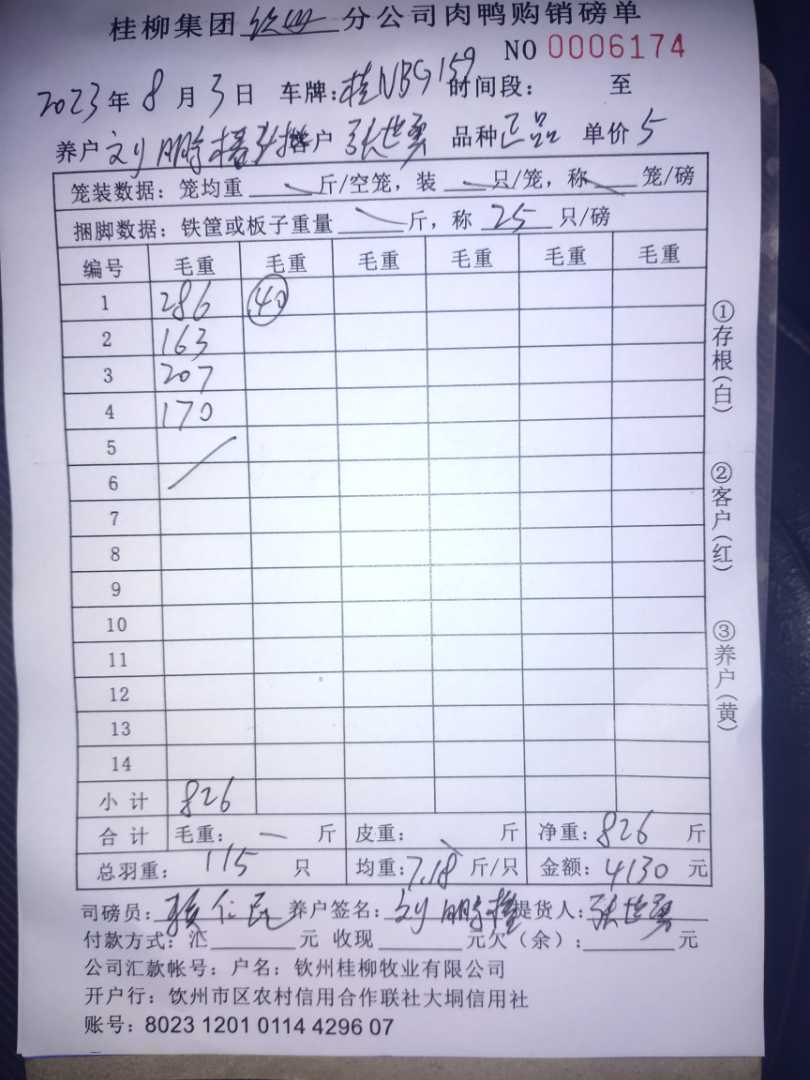 桂柳集团钦州分公司肉鸭购销磅单
NO 0006174
2023年8月3日 车牌:桂NBG159 时间段: 至
养户刘鹏 客户 张世勇 品种正品 单价5
笼装数据: 笼均重 斤/空笼, 装 只/笼, 称 笼/磅
捆脚数据: 铁筐或板子重量 斤, 称 25 只/磅
编号 毛重 毛重 毛重 毛重 毛重 毛重
1 286 40
2 163
3 207
4 170
5
6
7
8
9
10
11
12
13
14
小计 826
合计 毛重: 斤 皮重: 斤 净重: 826 斤
总羽重: 115 只 均重: 7.18 斤/只 金额: 4130 元
①存根(白)
②客户(红)
③养户(黄)
司磅员: 养户签名: 刘鹏 提货人: 张世勇
付款方式: 汇 元 收现 元欠(余): 元
公司汇款帐号: 户名: 钦州桂柳牧业有限公司
开户行: 钦州市区农村信用合作联社大垌信用社
账号: 8023 1201 0114 4296 07